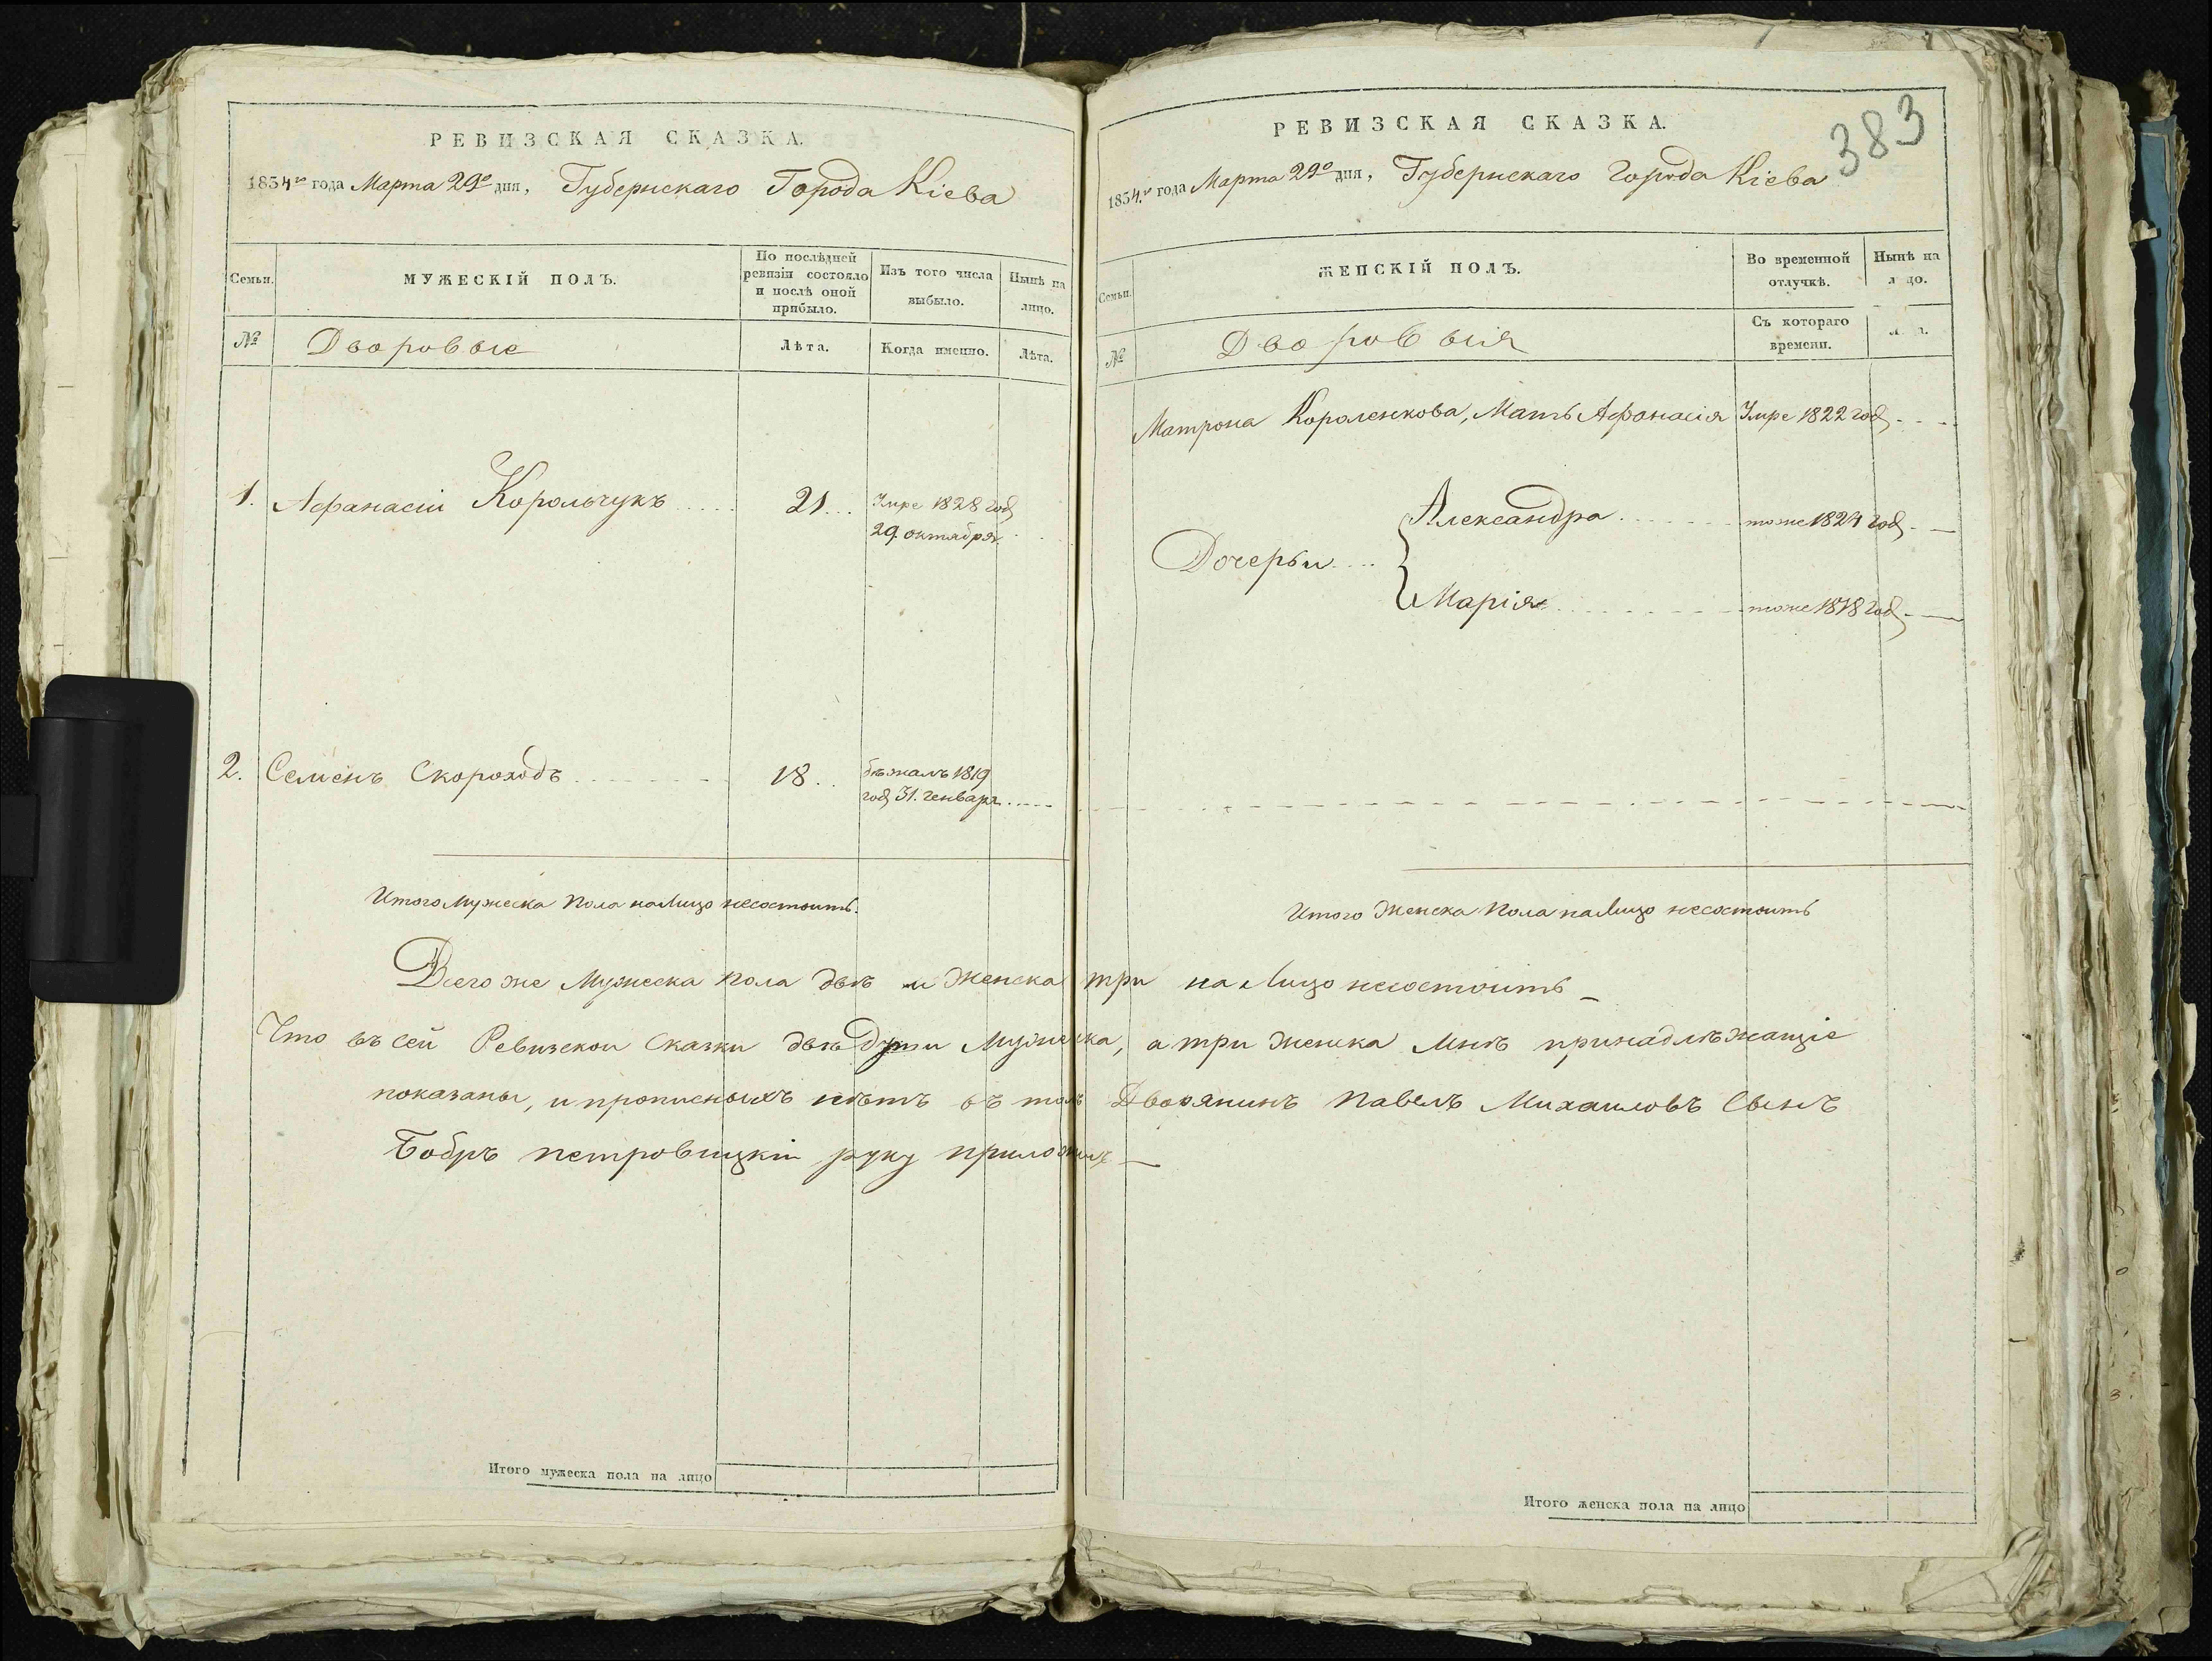 РЕВИЗСКАЯ СКАЗКА.
1834го года Марта 29го дня, Губернскаго Города Кіева
Семьи.
МУЖЕСКІЙ ПОЛЪ.
По послѣдней ревизіи состояло и послѣ оной прибыло.
Изъ того числа выбыло.
Нынѣ на лицо.
№
Дворовые
Лѣта.
Когда именно.
Лѣта.
1. Афанасіи Корольчукъ 21 Умре 1828 год
29. октября
2. Семенъ Скороходъ 18 бѣжалъ 1819
год 31. генваря
Итого мужеска пола налицо несостоитъ.
РЕВИЗСКАЯ СКАЗКА.
383
1834.го года Марта 29го дня, Губернскаго города Кіева
Семьи.
ЖЕНСКІЙ ПОЛЪ.
Во временной отлучкѣ.
Нынѣ на лицо.
№
Дворовыя
Съ котораго времени.
Матрона Короленкова, Мать Афанасія Умре 1822 год
Александра тоже 1824 год
Дочерьи
Марія тоже 1818 год
Итого Женска пола налицо несостоитъ
Всего же Мужеска пола двѣ и Женска три на лицо несостоитъ
Что въ сей Ревизскои Сказки двѣ Души Мужеска, а три женска Мнѣ принадлѣжащіе
показаны, и прописныхъ нѣтъ въ томъ Дворянинъ Павелъ Михаиловъ Сынъ
Бобръ петровицкіи руку приложилъ
Итого мужеска пола на лицо
Итого женска пола на лицо